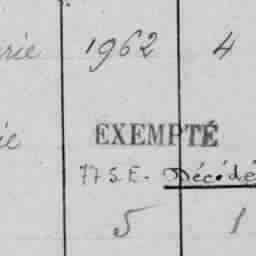 rie 1962 4
ie EXEMPTÉ
77 S.E. Décédé
5 1